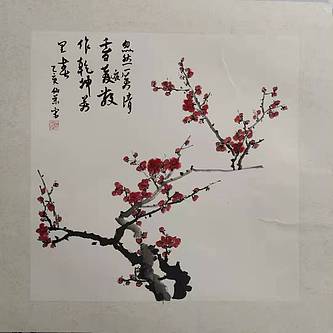 忽然一夜清
香發散
作乾坤萬
里春
乙亥